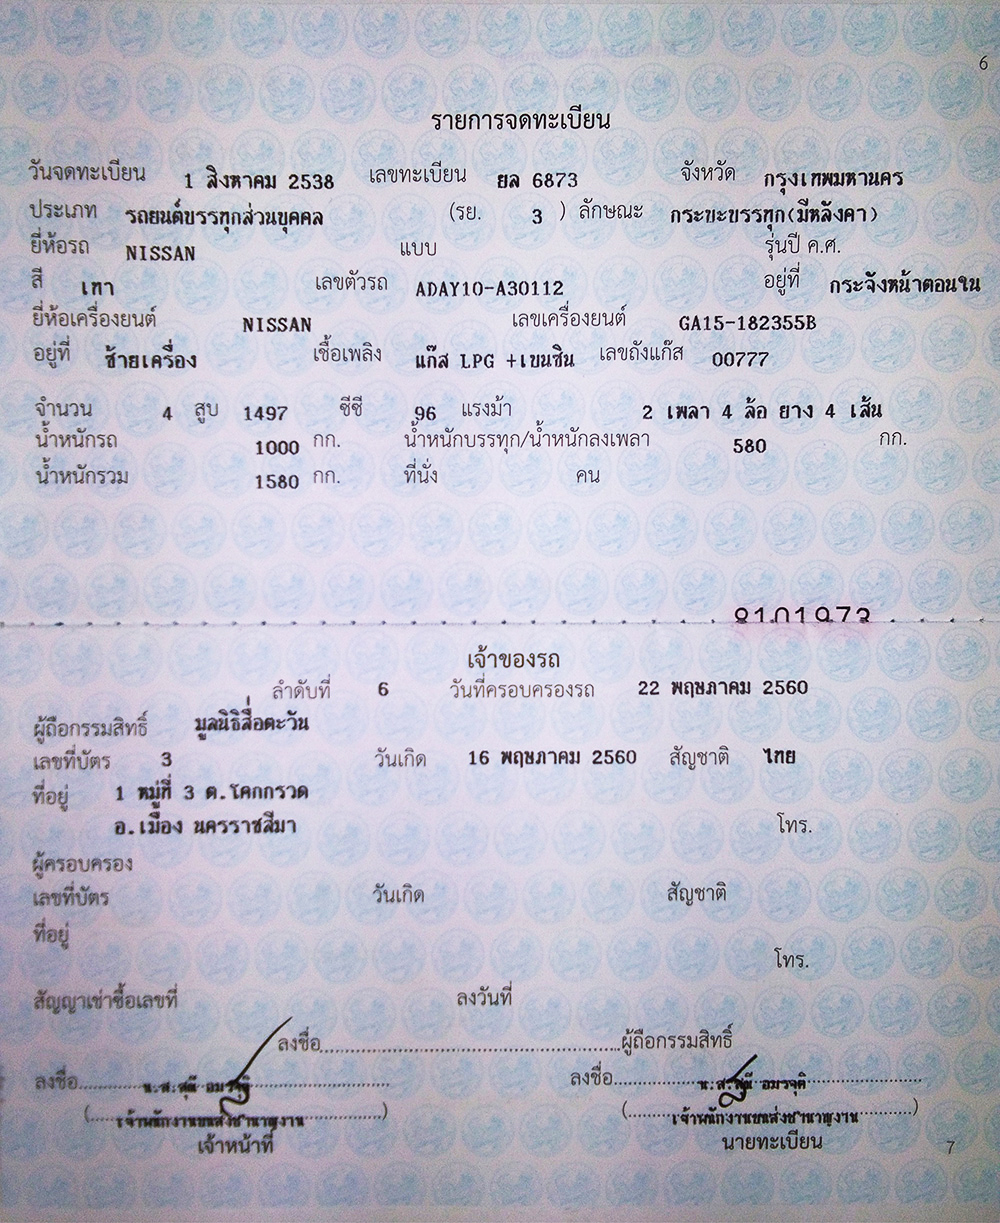 6
รายการจดทะเบียน
วันจดทะเบียน 1 สิงหาคม 2538 เลขทะเบียน ยล 6873 จังหวัด กรุงเทพมหานคร
ประเภท รถยนต์บรรทุกส่วนบุคคล (รย. 3 ) ลักษณะ กระบะบรรทุก(มีหลังคา)
ยี่ห้อรถ NISSAN แบบ รุ่นปี ค.ศ.
สี เทา เลขตัวรถ ADAY10-A30112 อยู่ที่ กระจังหน้าตอนใน
ยี่ห้อเครื่องยนต์ NISSAN เลขเครื่องยนต์ GA15-182355B
อยู่ที่ ซ้ายเครื่อง เชื้อเพลิง แก๊ส LPG +เบนซิน เลขถังแก๊ส 00777
จำนวน 4 สูบ 1497 ซีซี 96 แรงม้า 2 เพลา 4 ล้อ ยาง 4 เส้น
น้ำหนักรถ 1000 กก. น้ำหนักบรรทุก/น้ำหนักลงเพลา 580 กก.
น้ำหนักรวม 1580 กก. ที่นั่ง คน
9101973
เจ้าของรถ
ลำดับที่ 6 วันที่ครอบครองรถ 22 พฤษภาคม 2560
ผู้ถือกรรมสิทธิ์ มูลนิธิสื่อตะวัน
เลขที่บัตร 3 วันเกิด 16 พฤษภาคม 2560 สัญชาติ ไทย
ที่อยู่ 1 หมู่ที่ 3 ต.โคกกรวด
อ.เมือง นครราชสีมา โทร.
ผู้ครอบครอง
เลขที่บัตร วันเกิด สัญชาติ
ที่อยู่
โทร.
สัญญาเช่าซื้อเลขที่ ลงวันที่
ลงชื่อ ผู้ถือกรรมสิทธิ์
ลงชื่อ น.ส.สุณี อมรจุติ ลงชื่อ น.ส.สุณี อมรจุติ
(เจ้าพนักงานขนส่งชำนาญงาน) (เจ้าพนักงานขนส่งชำนาญงาน)
เจ้าหน้าที่ นายทะเบียน
7